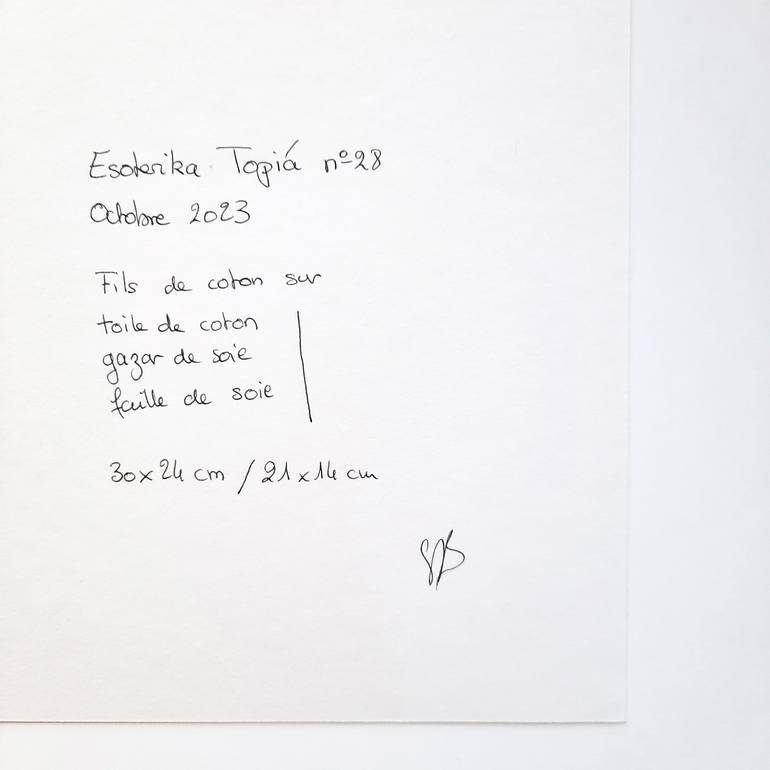 Esoterika Topiá nº28
Octobre 2023
Fils de coton sur
toile de coton
gazar de soie
faille de soie
30x24 cm / 21x14 cm